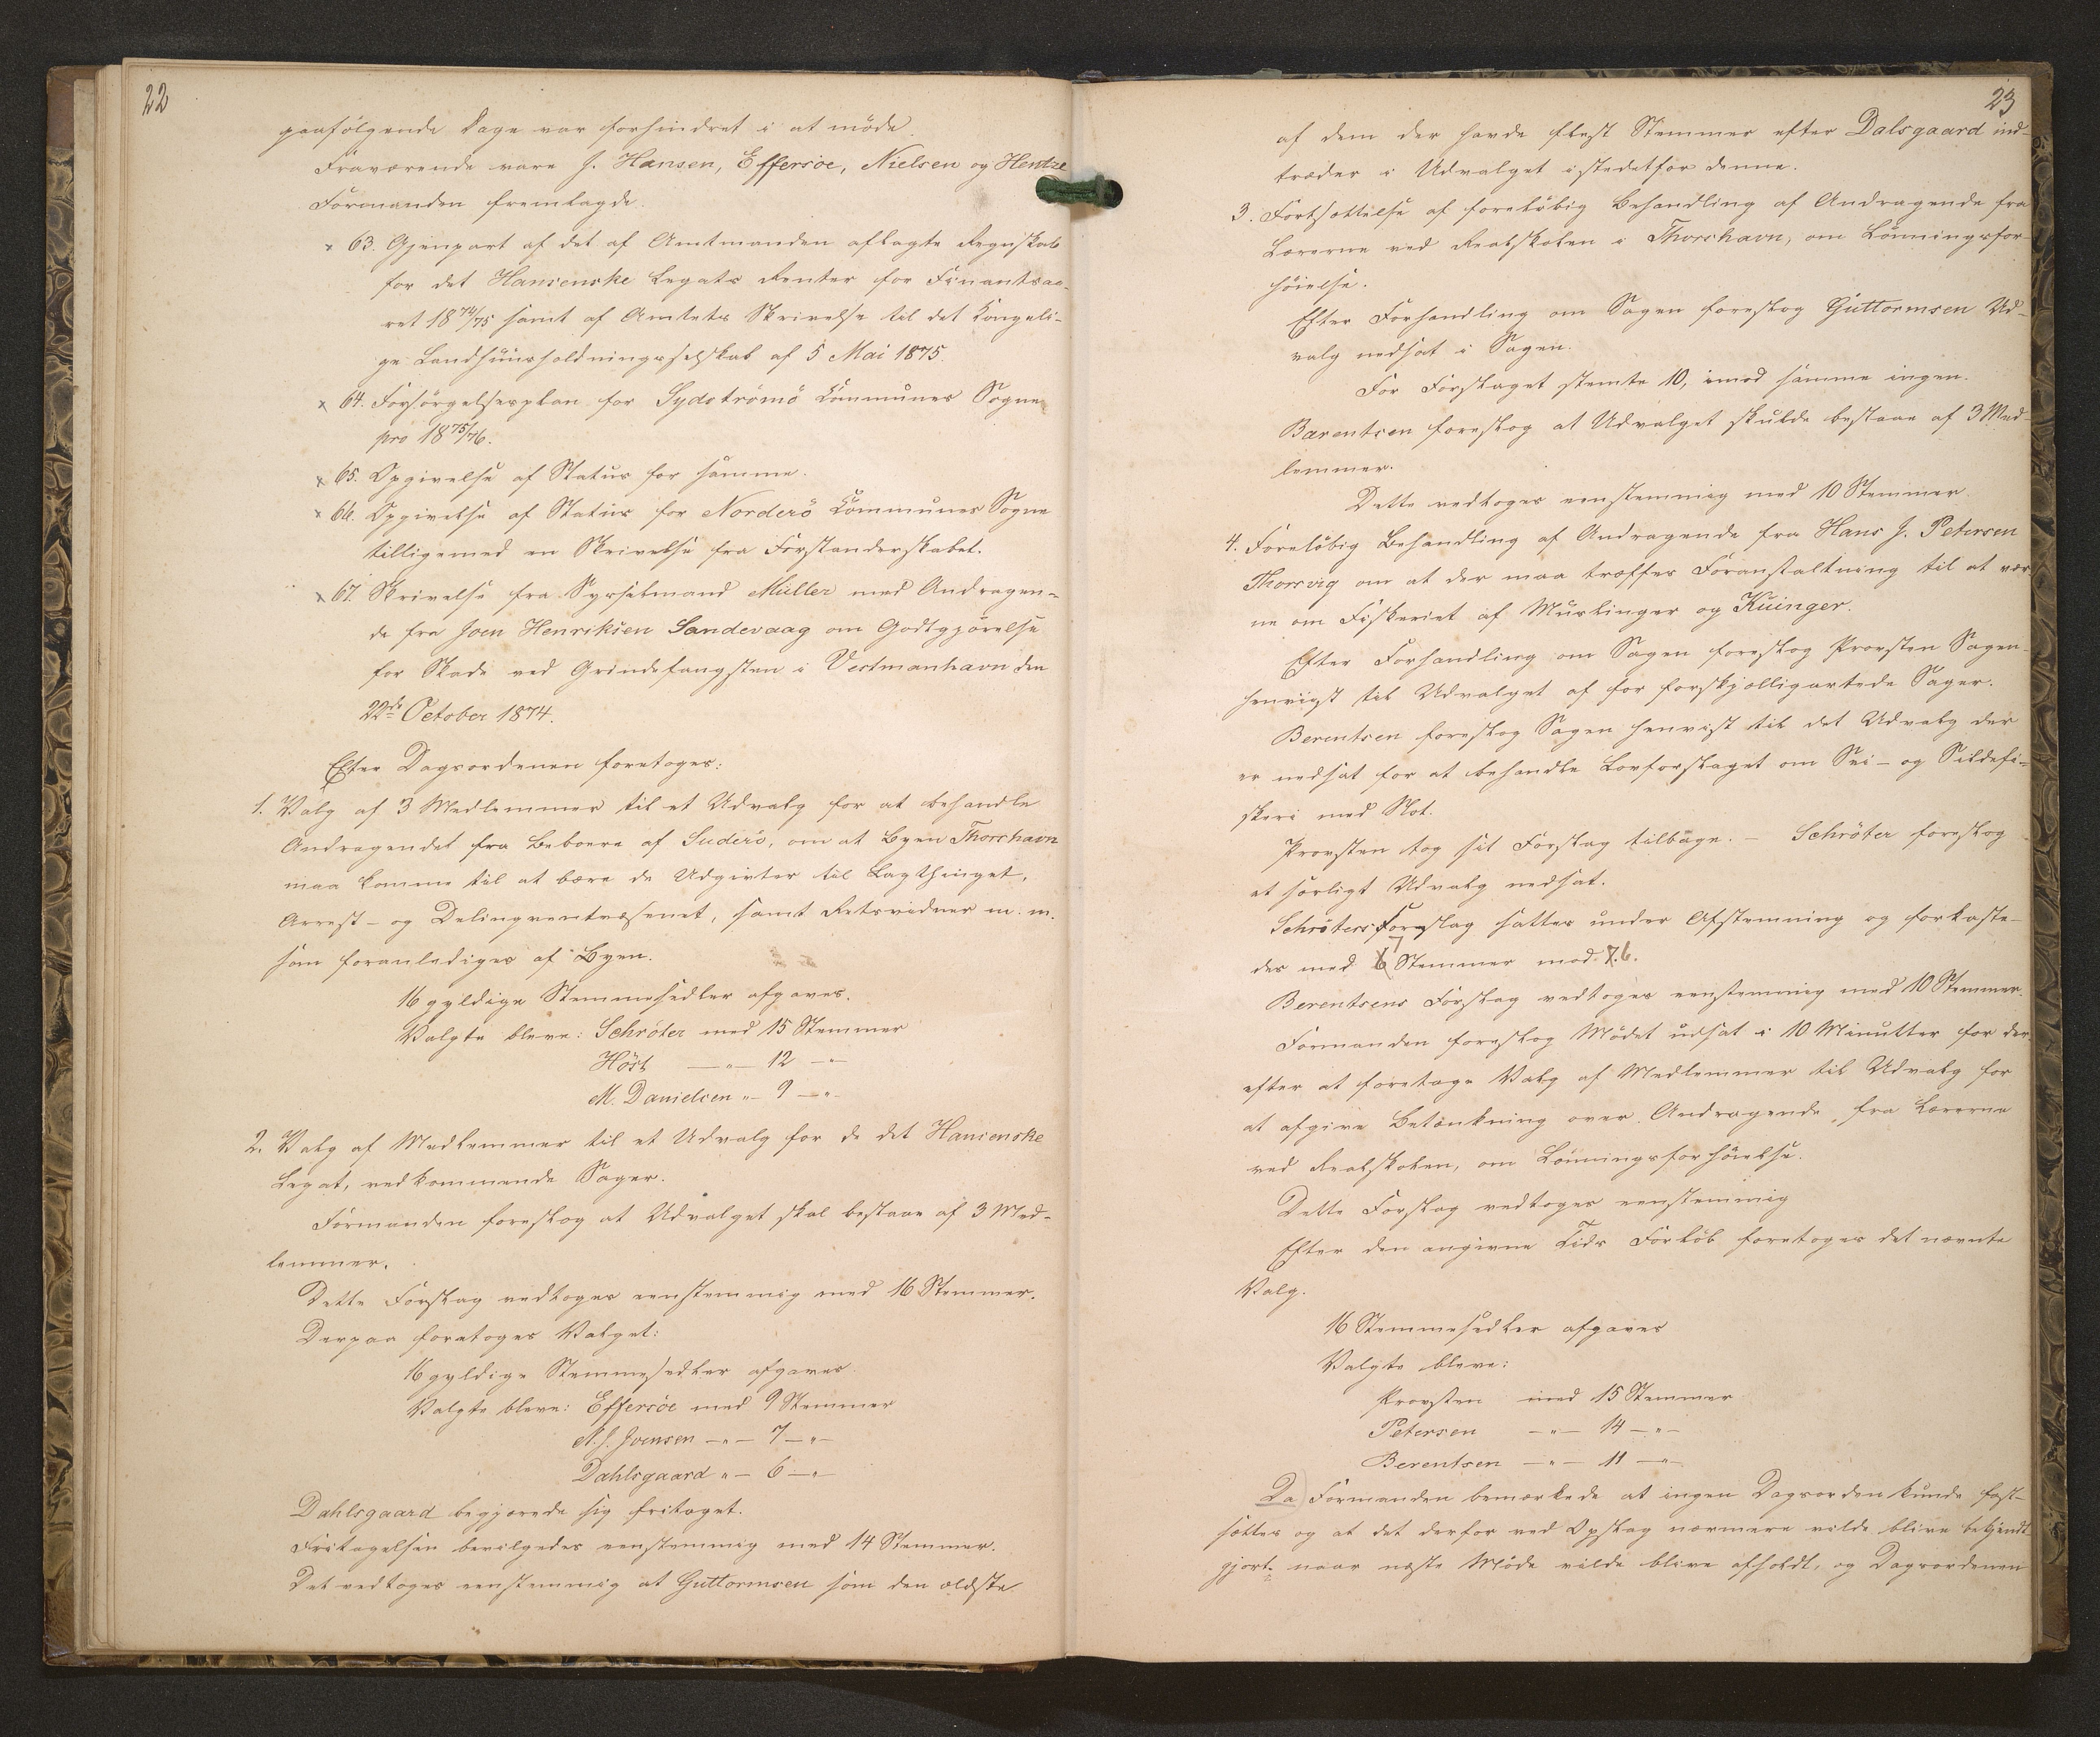 22
paafölgende Dage var forhindret i at møde.
Fraværende vare J. Hansen, Effersöe, Nielsen og Hentze
Formanden fremlagde.
× 63. Gjenpart af det af Amtmanden aflagte Regnskab
for det Hansenske Legats Renter for Finantsaa-
ret 18 74/75 samt af Amtets Skrivelse til det Kongeli-
ge Landhuusholdningsselskab af 5 Mai 1875.
× 64. Forsörgelsesplan for Sydströmö Kommunes Sogne
pro 18 75/76.
× 65. Opgivelse af Status for samme.
× 66. Opgivelse af Status for Norderö Kommunes Sogne
tilligemed en Skrivelse fra Forstanderskabet.
× 67. Skrivelse fra Sysselmand Müller med Andragen-
de fra Joen Henriksen Sandevaag om Godtgjörelse
for Skade ved Grindefangsten i Vestmanhavn den
22de October 1874.
Efter Dagsordenen foretoges:
1. Valg af 3 Medlemmer til et Udvalg for at behandle
Andragendet fra Beboere af Suderö, om at Byen Thorshavn
maa komme til at bære de Udgivter til Lagthinget,
Arrest- og Delinqventvæsenet, samt Retsvidner m. m.
som foranlediges af Byen.
16 gyldige Stemmesedler afgaves.
Valgte bleve: Schröter med 15 Stemmer
Höst —"— 12 —"—
M. Danielsen "— 9 —"—
2. Valg af Medlemmer til et Udvalg for de det Hansenske
Legat, vedkommende Sager.
Formanden foreslog at Udvalget skal bestaae af 3 Med-
lemmer.
Dette Forslag vedtoges eenstemmig med 16 Stemmer.
Derpaa foretoges Valget:
16 gyldige Stemmesedler afgaves
Valgte bleve: Effersöe med 9 Stemmer
N. J. Joensen —"— 7 —"—
Dahlsgaard "— 6 —"—
Dahlsgaard begjærede sig fritaget.
Fritagelsen bevilgedes eenstemmig med 14 Stemmer.
Det vedtoges eenstemmig at Guttormsen som den ældste
23
af dem der havde flest Stemmer efter Dalsgaard ind-
træder i Udvalget istedetfor denne.
3. Fortsættelse af forelöbig Behandling af Andragende fra
Lærerne ved Realskolen i Thorshavn, om Lönningsfor-
höielse.
Efter Forhandling om Sagen foreslog Guttormsen Ud-
valg nedsat i Sagen.
For Forslaget stemte 10, imod samme ingen.
Barentsen foreslog at Udvalget skulde bestaae af 3 Med-
lemmer.
Dette vedtoges eenstemmig med 10 Stemmer.
4. Forelöbig Behandling af Andragende fra Hans J. Petersen
Thorsvig om at der maa træffes Foranstaltning til at vær-
ne om Fiskeriet af Muslinger og Kuinger.
Efter Forhandling om Sagen foreslog Provsten Sagen
henviist til Udvalget af for forskjælligartede Sager.
Berentsen foreslog Sagen henvist til det Udvalg der
er nedsat for at behandle Lovforslaget om Sei- og Sildefi-
skeri med Not.
Provsten tog sit Forslag tilbage. Schröter foreslog
et særligt Udvalg nedsat.
Schröters Forslag sattes under Afstemning og forkaste-
des med 7 Stemmer mod 6.
Berentsens Forslag vedtoges eenstemmig med 10 Stemmer.
Formanden foreslog Mödet udsat i 10 Minutter for der-
efter at foretage Valg af Medlemmer til Udvalg for
at afgive Betænkning over Andragende, fra Lærerne
ved Realskolen, om Lönningsforhöielse.
Dette Forslag vedtoges eenstemmig
Efter den angivne Tids Forlöb foretoges det nævnte
Valg.
16 Stemmesedler afgaves
Valgte bleve:
Provsten med 15 Stemmer
Petersen —"— 14 —"—
Berentsen —"— 11 —"—
Da Formanden bemærkede at ingen Dagsorden kunde fast-
sættes og at det derfor ved Opslag nærmere vilde blive bekjendt-
gjort. naar næste Möde vilde blive afholdt, og Dagsordenen